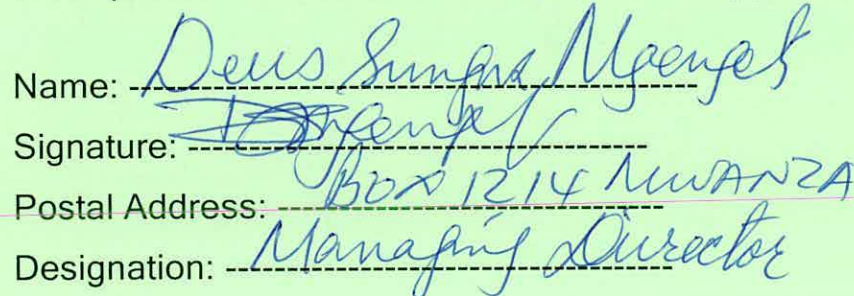 Name: Deus Sungra Mgengeli
Signature:
Postal Address: BOX 1214 MWANZA
Designation: Managing Director